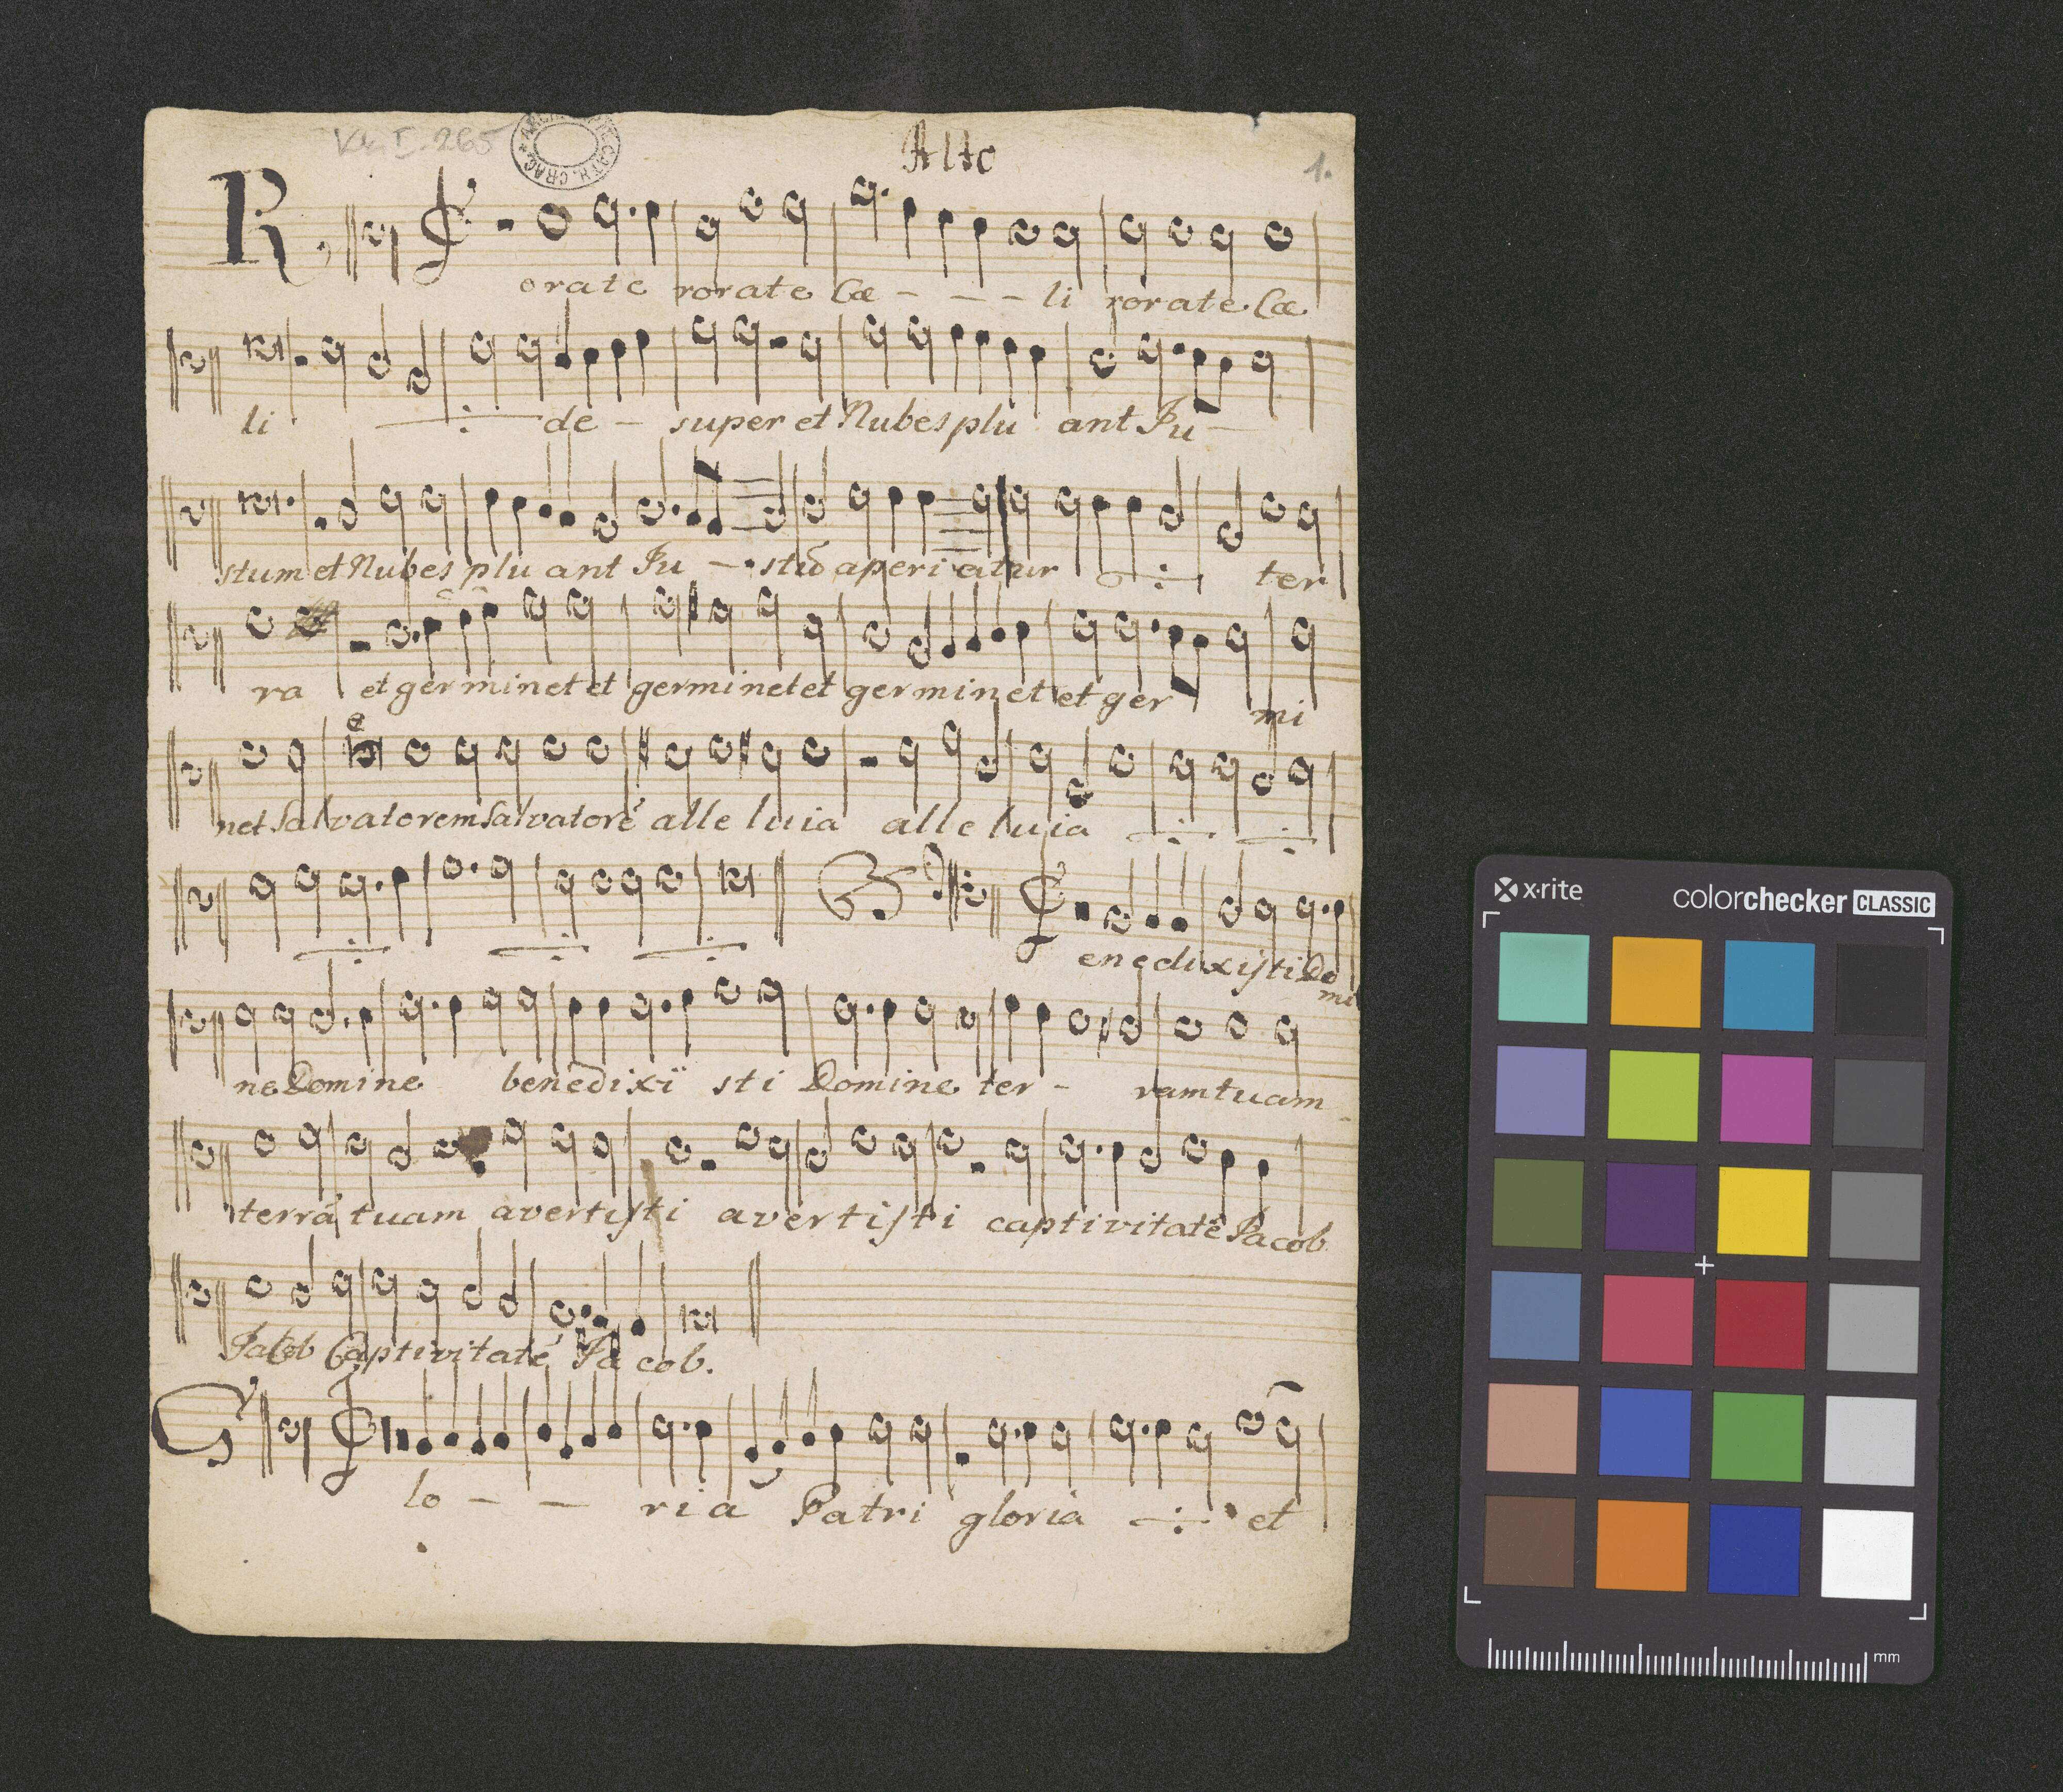 Kk. I. 265 Alto 1.
R
orate rorate Cæ - - - li rorate Cæ
li ÷ de - super et Nubes plu ant Ju -
stum et Nubes plu ant Ju - stū aperi atur ÷ ter
ra et germinet et germinet et germinet et ger mi
net Salvatorem Salvatoré alle luia alle luia ÷ ÷
÷ ÷ ÷ B
enedixisti Do
mi
ne Domine benedixï sti Domine ter - ram tuam
terrā tuam avertisti avertisti captivitatē Jacob
Jacob Captivitaté Ja cob.
G
lo - - ria Patri gloria ÷ et
x·rite colorchecker CLASSIC
mm